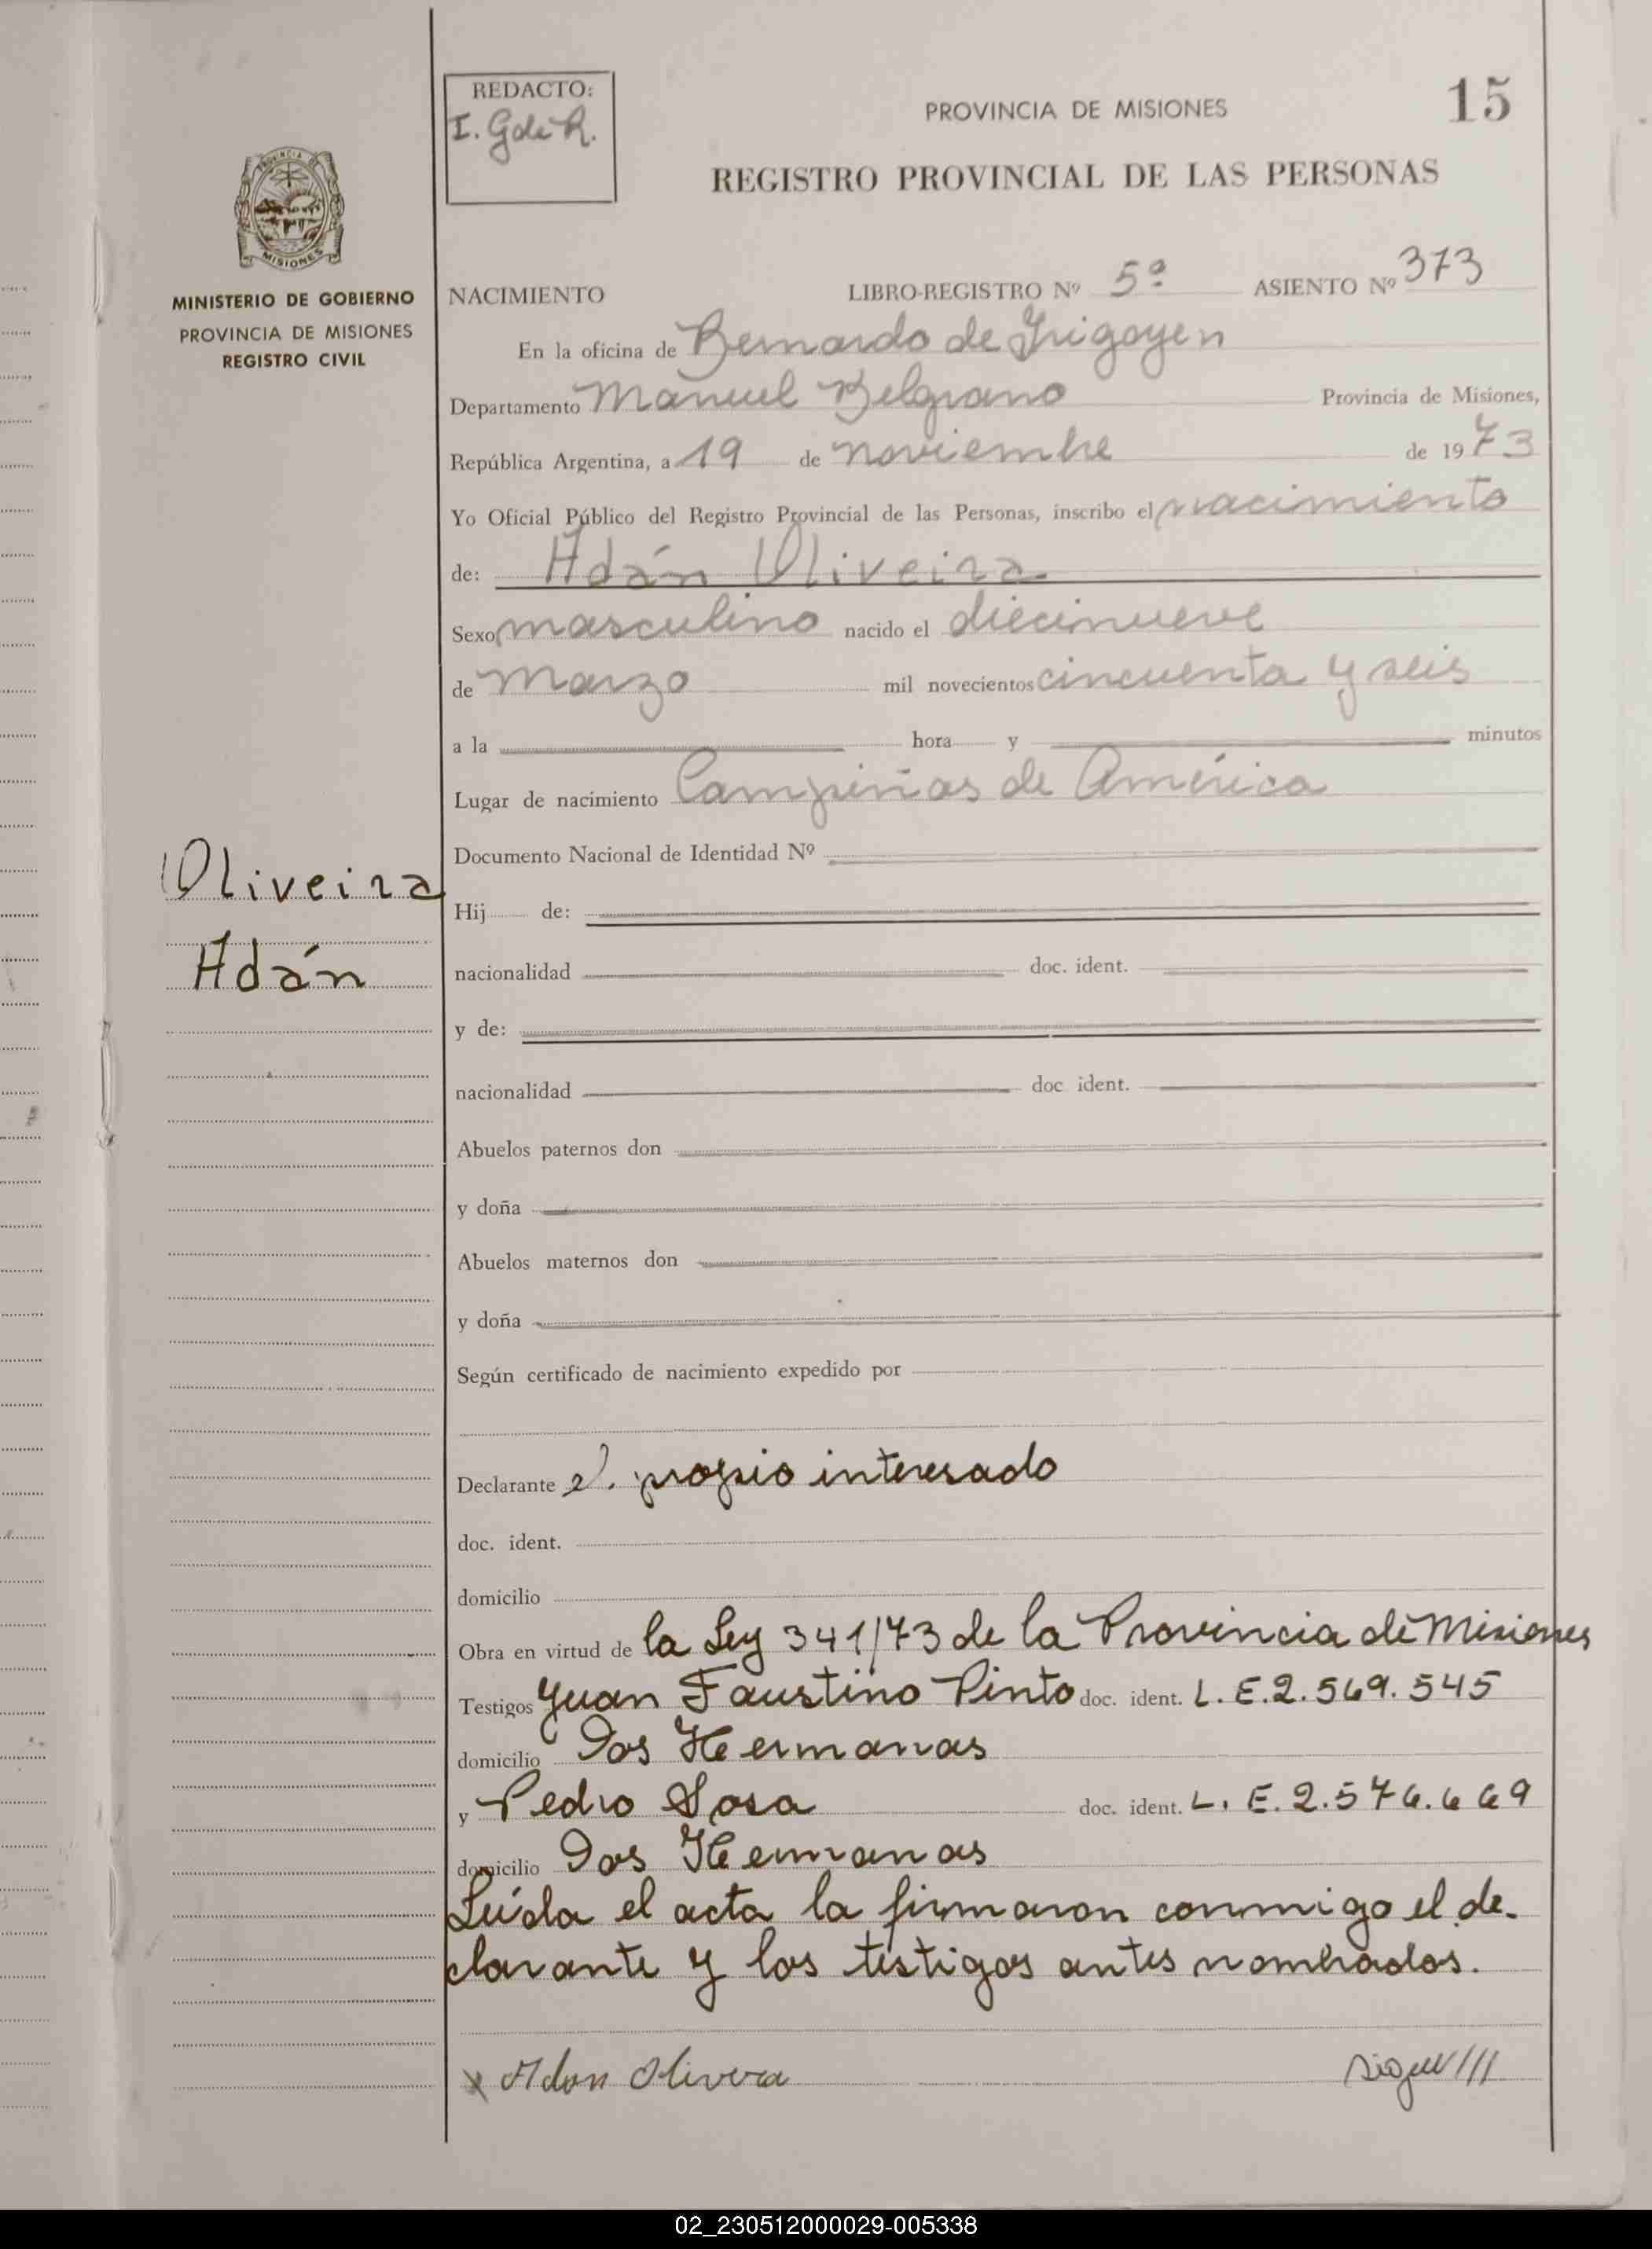 REDACTO:
I. G de R.
PROVINCIA DE MISIONES
15
REGISTRO PROVINCIAL DE LAS PERSONAS
MISIONES
MINISTERIO DE GOBIERNO
PROVINCIA DE MISIONES
REGISTRO CIVIL
NACIMIENTO LIBRO-REGISTRO Nº 5º ASIENTO Nº 373
En la oficina de Bernardo de Irigoyen
Departamento Manuel Belgrano Provincia de Misiones,
República Argentina, a 19 de noviembre de 1973
Yo Oficial Público del Registro Provincial de las Personas, inscribo el nacimiento
de: Adán Oliveira
Sexo masculino nacido el diecinueve
de Marzo mil novecientos cincuenta y seis
a la hora y minutos
Lugar de nacimiento Campiñas de América
Documento Nacional de Identidad Nº
Oliveira
Adán
Hij de:
nacionalidad doc. ident.
y de:
nacionalidad doc ident.
Abuelos paternos don
y doña
Abuelos maternos don
y doña
Según certificado de nacimiento expedido por
Declarante el propio interesado
doc. ident.
domicilio
Obra en virtud de la Ley 341/73 de la Provincia de Misiones
Testigos Juan Faustino Pinto doc. ident. L. E. 2.569.545
domicilio Dos Hermanas
y Pedro Sosa doc. ident. L. E. 2.576.669
domicilio Dos Hermanas
Leída el acta la firmaron conmigo el de-
clarante y los testigos antes nombrados.
x Adan Olivera
sigue///
02_230512000029-005338